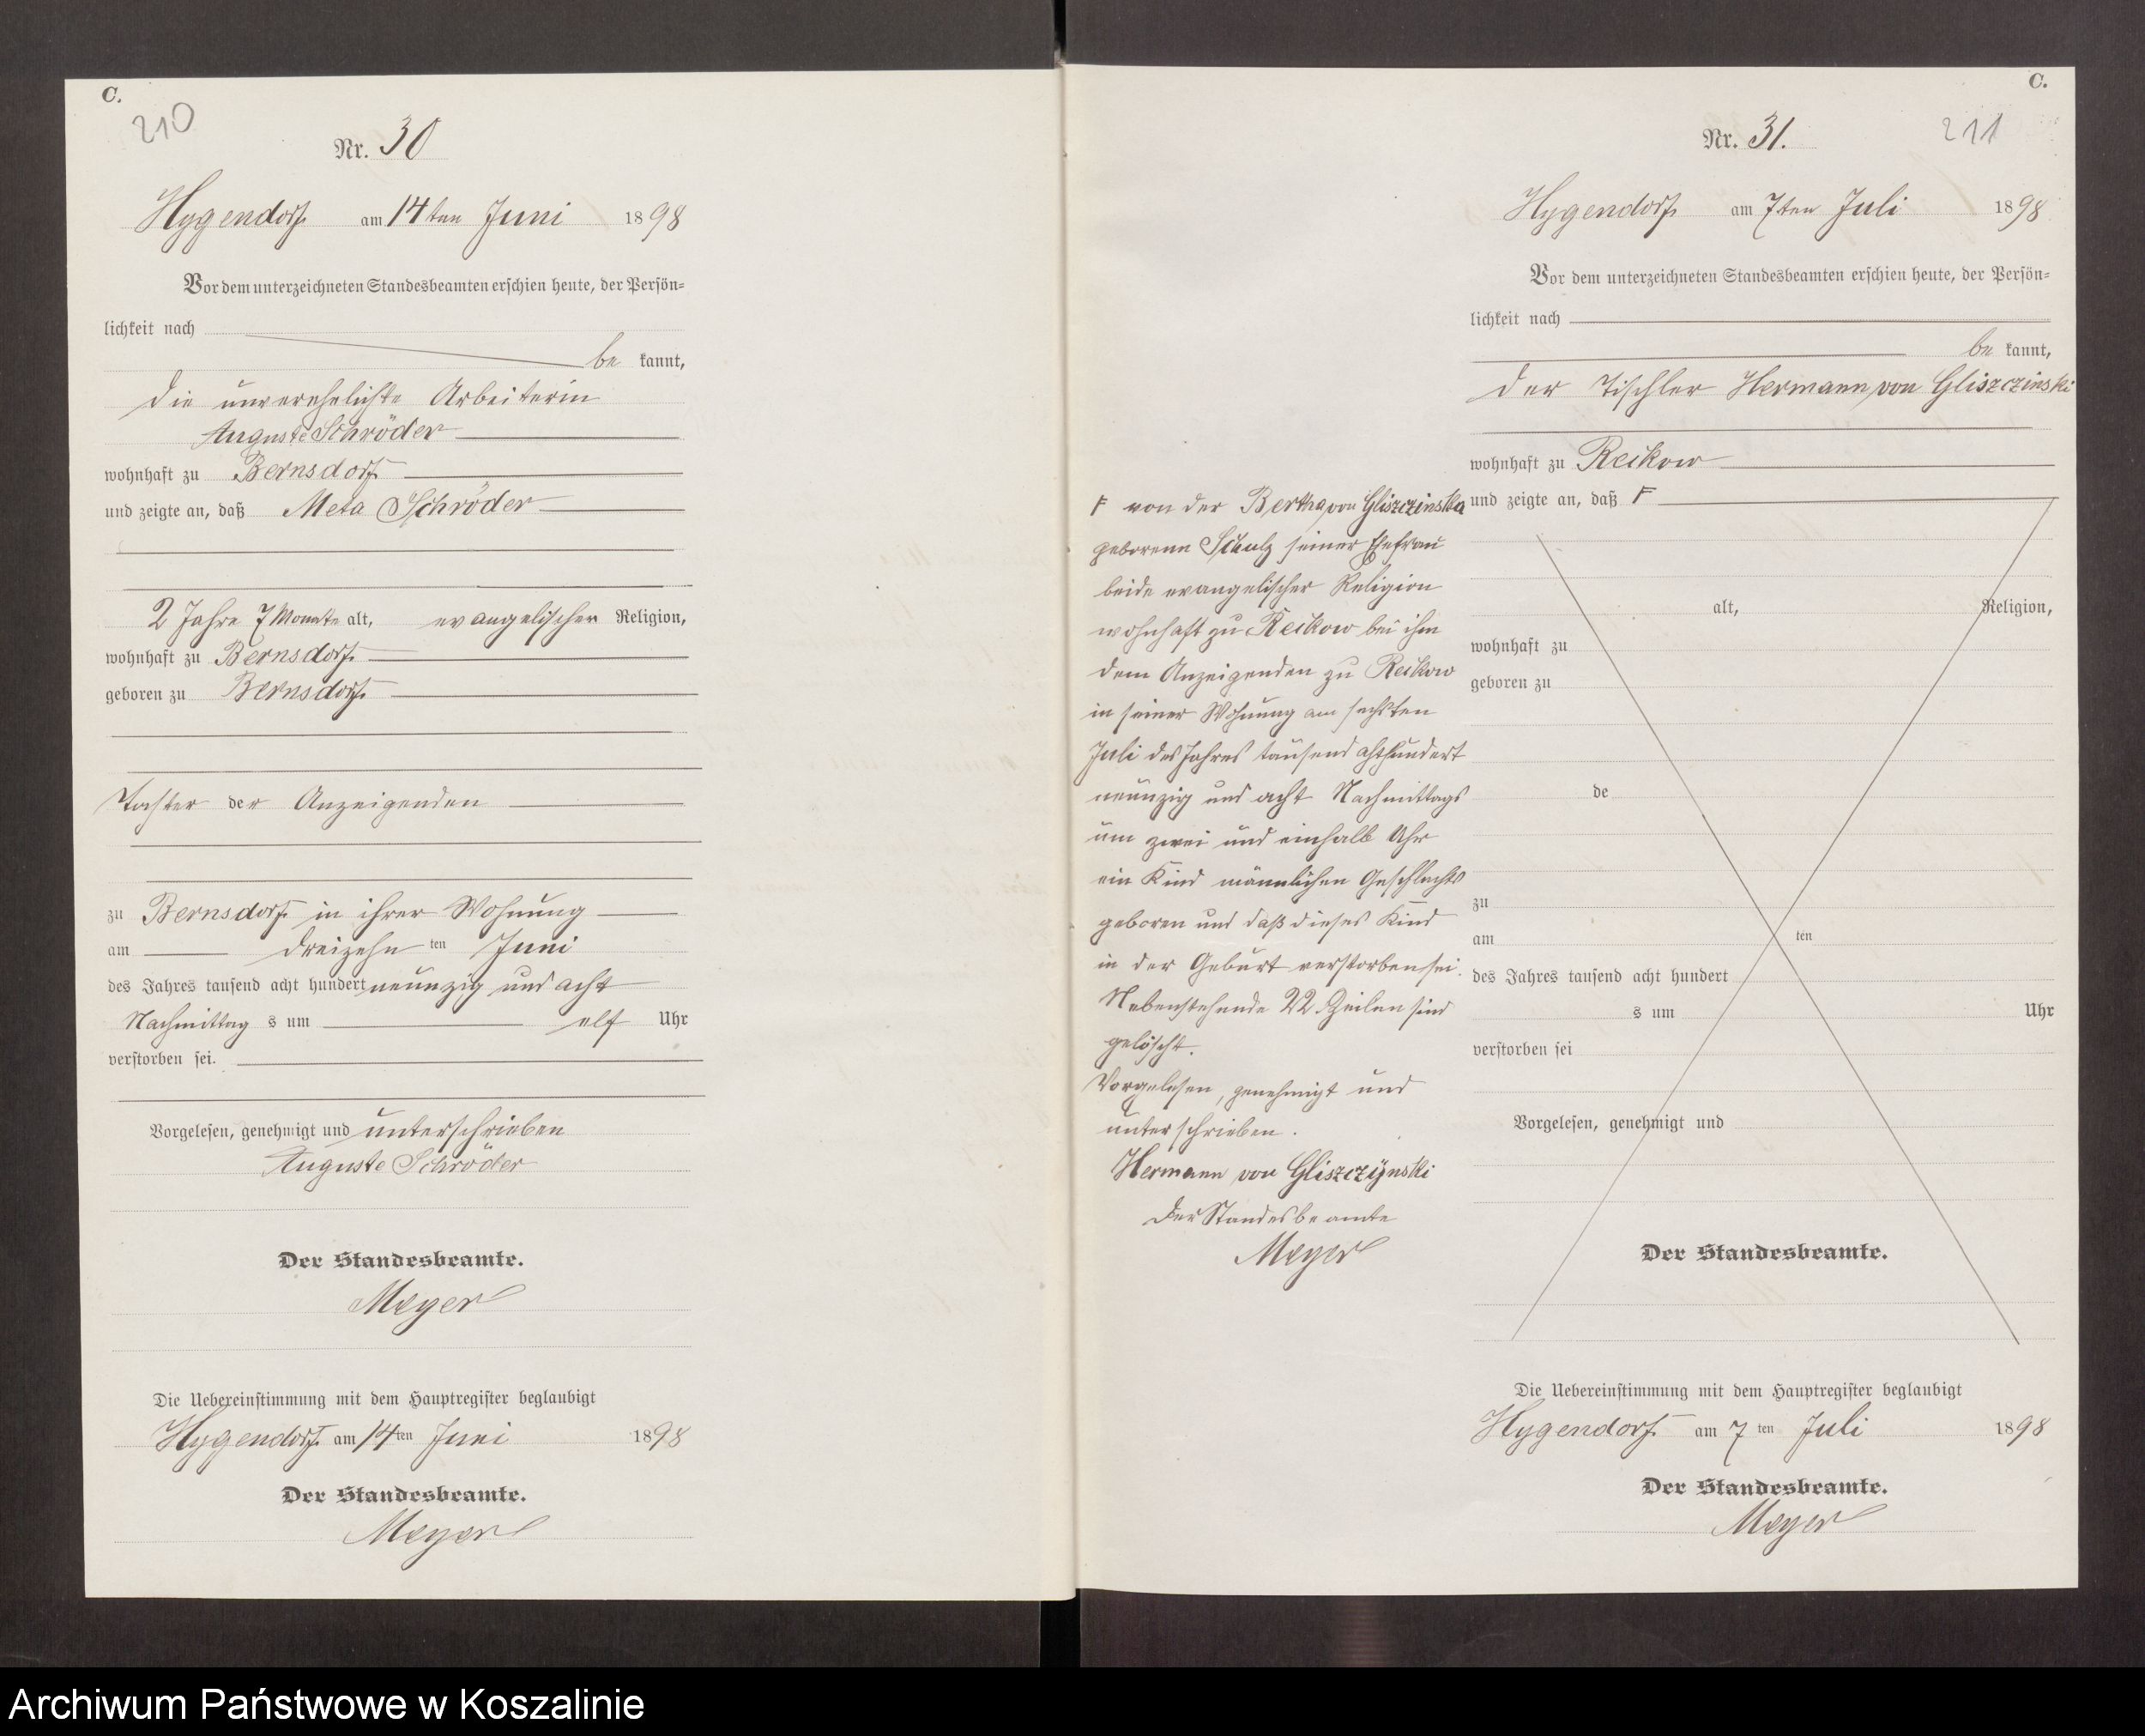 C.
210
Nr. 30
Hygendorf am 14ten Juni 1898
Vor dem unterzeichneten Standesbeamten erschien heute, der Persön-
lichkeit nach
be kannt,
die unverehelichte Arbeiterin
Auguste Schröder
wohnhaft zu Bernsdorf
und zeigte an, daß Meta Schröder
2 Jahre 7 Monate alt, evangelischer Religion,
wohnhaft zu Bernsdorf
geboren zu Bernsdorf
Tochter der Anzeigenden
zu Bernsdorf in ihrer Wohnung
am dreizehn ten Juni
des Jahres tausend acht hundert neunzig und acht
Nachmittag s um elf Uhr
verstorben sei.
Vorgelesen, genehmigt und unterschrieben
Auguste Schröder
Der Standesbeamte.
Meyer
Die Uebereinstimmung mit dem Hauptregister beglaubigt
Hygendorf am 14ten Juni 1898
Der Standesbeamte.
Meyer
C.
211
Nr. 31.
Hygendorf am 7ten Juli 1898
Vor dem unterzeichneten Standesbeamten erschien heute, der Persön-
lichkeit nach
be kannt,
der Tischler Hermann von Gliszczinski
wohnhaft zu Reikow
und zeigte an, daß F
alt, Religion,
wohnhaft zu
geboren zu
de
zu
am ten
des Jahres tausend acht hundert
s um Uhr
verstorben sei
Vorgelesen, genehmigt und
Der Standesbeamte.
F von der Bertha von Gliszczinska
geborenen Schulz seiner Ehefrau
beide evangelischer Religion
wohnhaft zu Reikow bei ihm
dem Anzeigenden zu Reikow
in seiner Wohnung am sechsten
Juli des Jahres tausend achthundert
neunzig und acht Nachmittags
um zwei und einhalb Uhr
ein Kind männlichen Geschlechts
geboren und daß dieses Kind
in der Geburt verstorben sei.
Nebenstehende 22 Zeilen sind
gelöscht.
Vorgelesen, genehmigt und
unterschrieben.
Hermann von Gliszczÿnski
Der Standesbeamte
Meyer
Die Uebereinstimmung mit dem Hauptregister beglaubigt
Hygendorf am 7 ten Juli 1898
Der Standesbeamte.
Meyer
Archiwum Państwowe w Koszalinie